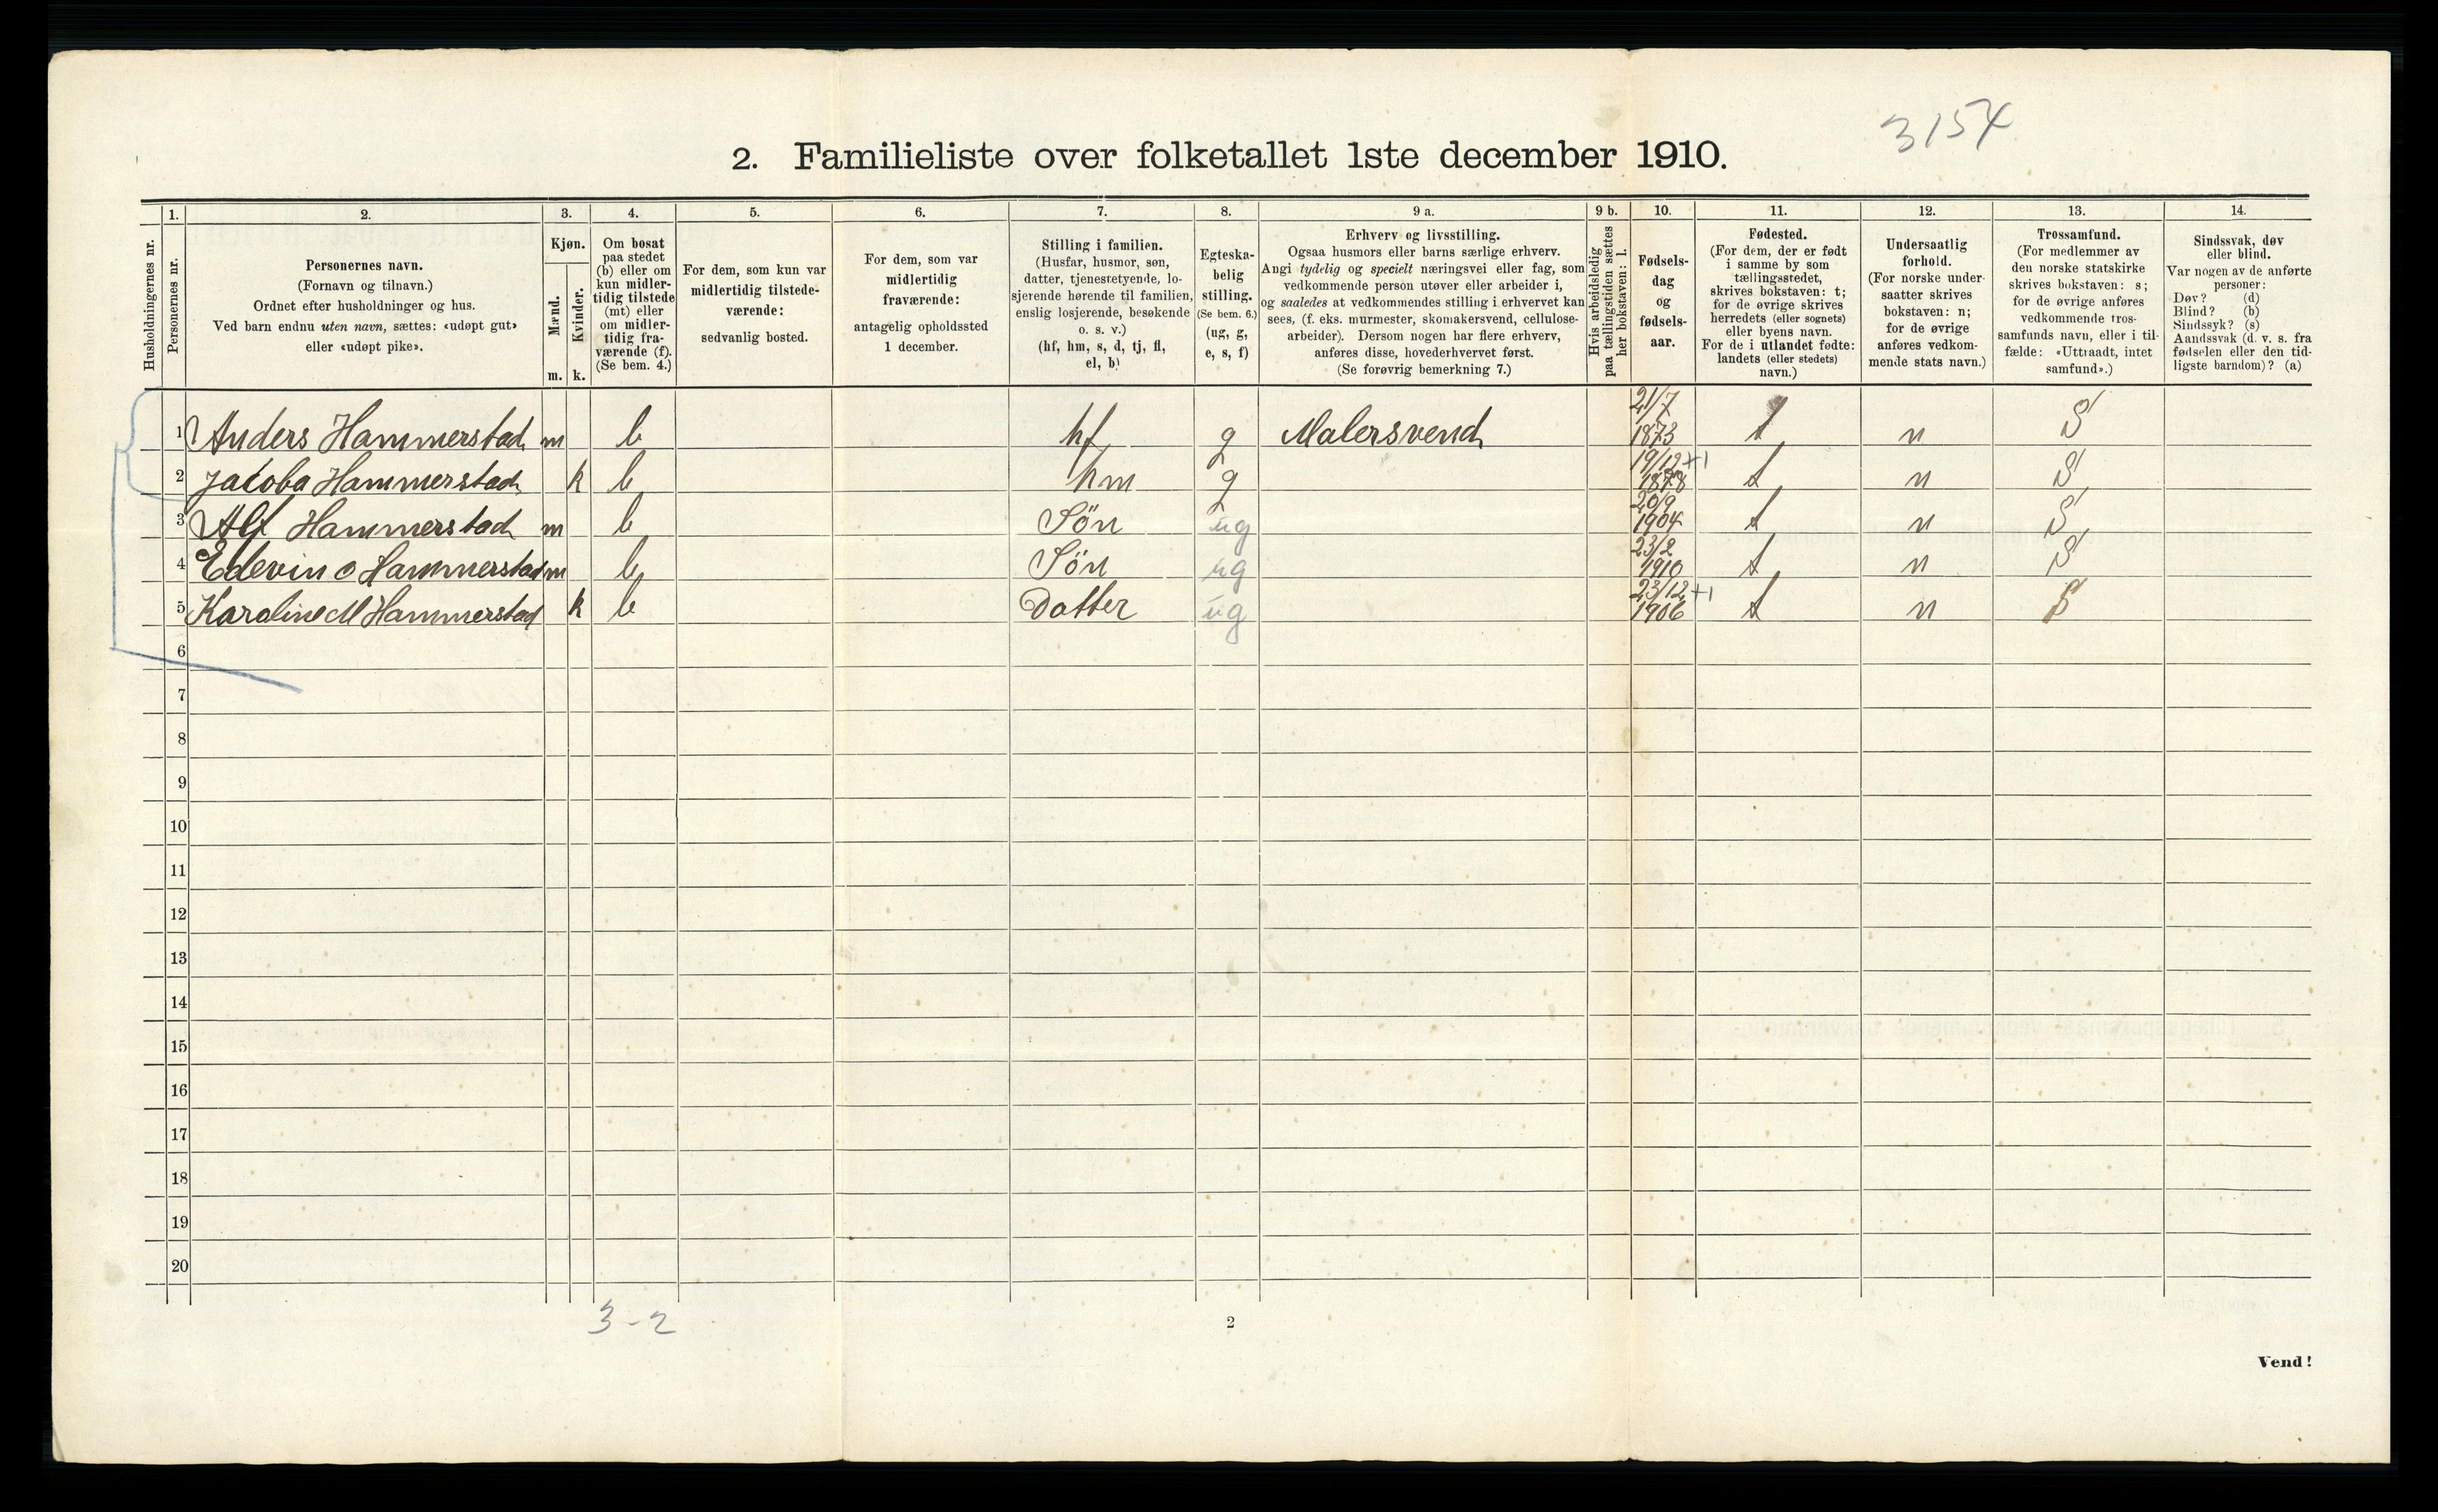 3154
2. Familieliste over folketallet 1ste december 1910.
Husholdningernes nr.
1.
Personernes nr.
2.
Personernes navn.
(Fornavn og tilnavn.)
Ordnet efter husholdninger og hus.
Ved barn endnu uten navn, sættes: «udøpt gut»
eller «udøpt pike».
3.
Kjøn.
Mænd.
Kvinder.
m. k.
4.
Om bosat
paa stedet
(b) eller om
kun midler-
tidig tilstede
(mt) eller
om midler-
tidig fra-
værende (f).
(Se bem. 4.)
5.
For dem, som kun var
midlertidig tilstede-
værende:
sedvanlig bosted.
6.
For dem, som var
midlertidig
fraværende:
antagelig opholdssted
1 december.
7.
Stilling i familien.
(Husfar, husmor, søn,
datter, tjenestetyende, lo-
sjerende hørende til familien,
enslig losjerende, besøkende
o. s. v.)
(hf, hm, s, d, tj, fl,
el, b)
8.
Egteska-
belig
stilling.
(Se bem. 6.)
(ug, g,
e, s, f)
9 a.
Erhverv og livsstilling.
Ogsaa husmors eller barns særlige erhverv.
Angi tydelig og specielt næringsvei eller fag, som
vedkommende person utøver eller arbeider i,
og saaledes at vedkommendes stilling i erhvervet kan
sees, (f. eks. murmester, skomakersvend, cellulose-
arbeider). Dersom nogen har flere erhverv,
anføres disse, hovederhvervet først.
(Se forøvrig bemerkning 7.)
9 b.
Hvis arbeidsledig
paa tællingstiden sættes
her bokstaven: l.
10.
Fødsels-
dag
og
fødsels-
aar.
11.
Fødested.
(For dem, der er født
i samme by som
tællingsstedet,
skrives bokstaven: t;
for de øvrige skrives
herredets (eller sognets)
eller byens navn.
For de i utlandet fødte:
landets (eller stedets)
navn.)
12.
Undersaatlig
forhold.
(For norske under-
saatter skrives
bokstaven: n;
for de øvrige
anføres vedkom-
mende stats navn.)
13.
Trossamfund.
(For medlemmer av
den norske statskirke
skrives bokstaven: s;
for de øvrige anføres
vedkommende tros-
samfunds navn, eller i til-
fælde: «Uttraadt, intet
samfund».)
14.
Sindssvak, døv
eller blind.
Var nogen av de anførte
personer:
Døv? (d)
Blind? (b)
Sindssyk? (s)
Aandssvak (d. v. s. fra
fødselen eller den tid-
ligste barndom)? (a)
1 Anders Hammerstad m b hf g Malersvend 21/7 1873 t n S
2 Jacoba Hammerstad k b hm g 19/12 +1 1878 t n S
3 Alf Hammerstad m b Sön ug 20/9 1904 t n S
4 Edevin O Hammerstad m b Sön ug 23/2 1910 t n S
5 Karoline M Hammerstad k b Datter ug 23/12 +1 1906 t n S
6
7
8
9
10
11
12
13
14
15
16
17
18
19
20
3-2
2
Vend!